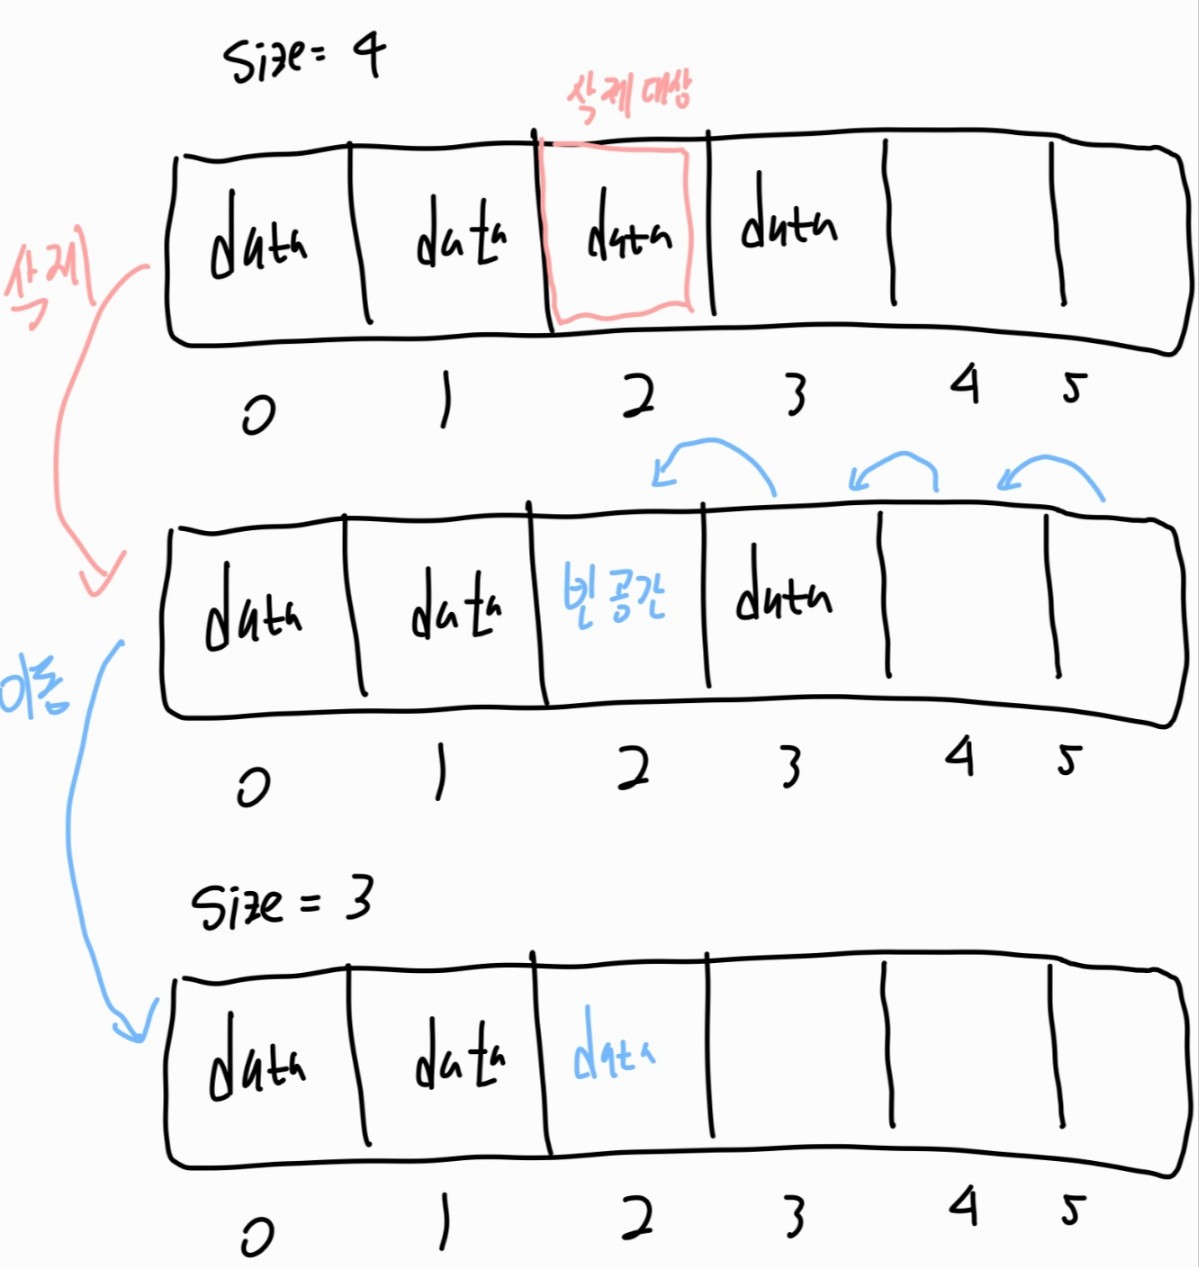 Size = 4
삭제 대상
삭제
data data data data
0 1 2 3 4 5
data data 빈 공간 data
이동
0 1 2 3 4 5
Size = 3
data data data
0 1 2 3 4 5